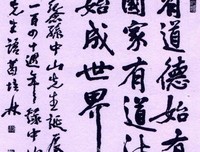 有道德始有
國家有道德
始成世界
孫中山先生誕辰
一百四十週年錄中山
先生語葛培林